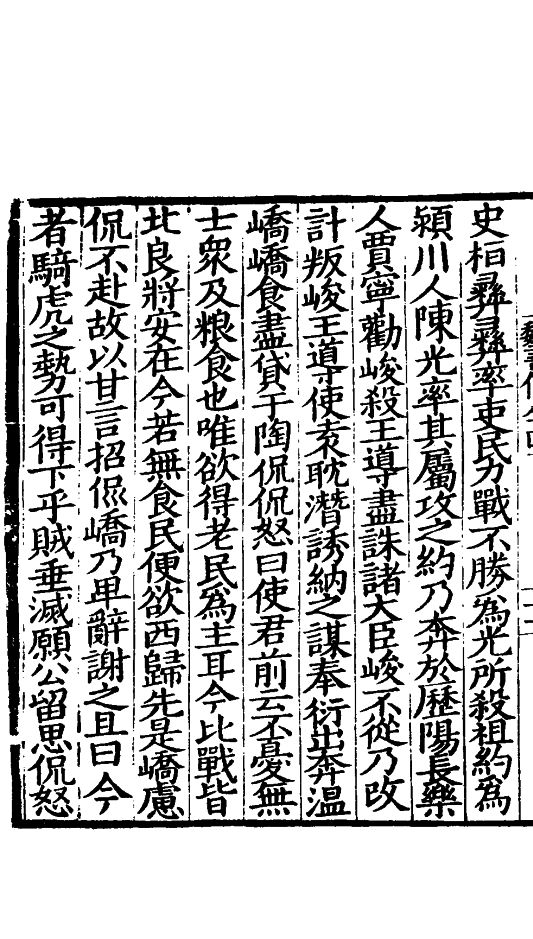 史桓彝彝率吏民力戰不勝爲光所殺祖約爲
潁川人陳光率其屬攻之約乃奔於歷陽長樂
人賈寧勸峻殺王導盡誅諸大臣峻不從乃改
計叛峻王導使袁耽潛誘納之謀奉衍出奔溫
嶠嶠食盡貸于陶侃侃怒曰使君前云不憂無
士衆及粮食也唯欲得老民爲主耳今比戰皆
北良將安在今若無食民便欲西歸先是嶠慮
侃不赴故以甘言招侃嶠乃卑辭謝之且曰今
者騎虎之勢可得下乎賊垂滅願公留思侃怒